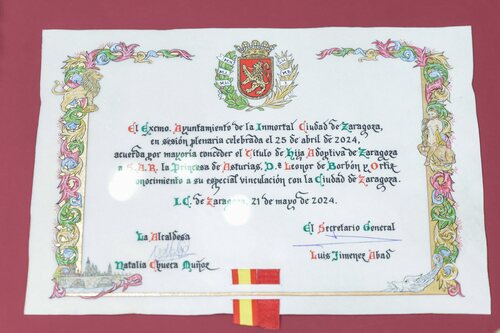 El Excmo. Ayuntamiento de la Inmortal Ciudad de Zaragoza,
en sesión plenaria celebrada el 25 de abril de 2024,
acuerda por mayoría conceder el Título de Hija Adoptiva de Zaragoza
a S.A.R. la Princesa de Asturias, D.ª Leonor de Borbón y Ortiz
reconocimiento a su especial vinculación con la Ciudad de Zaragoza.
I.C. de Zaragoza, 21 de mayo de 2024.
La Alcaldesa
El Secretario General
Natalia Chueca Muñoz
Luis Jimenez Abad